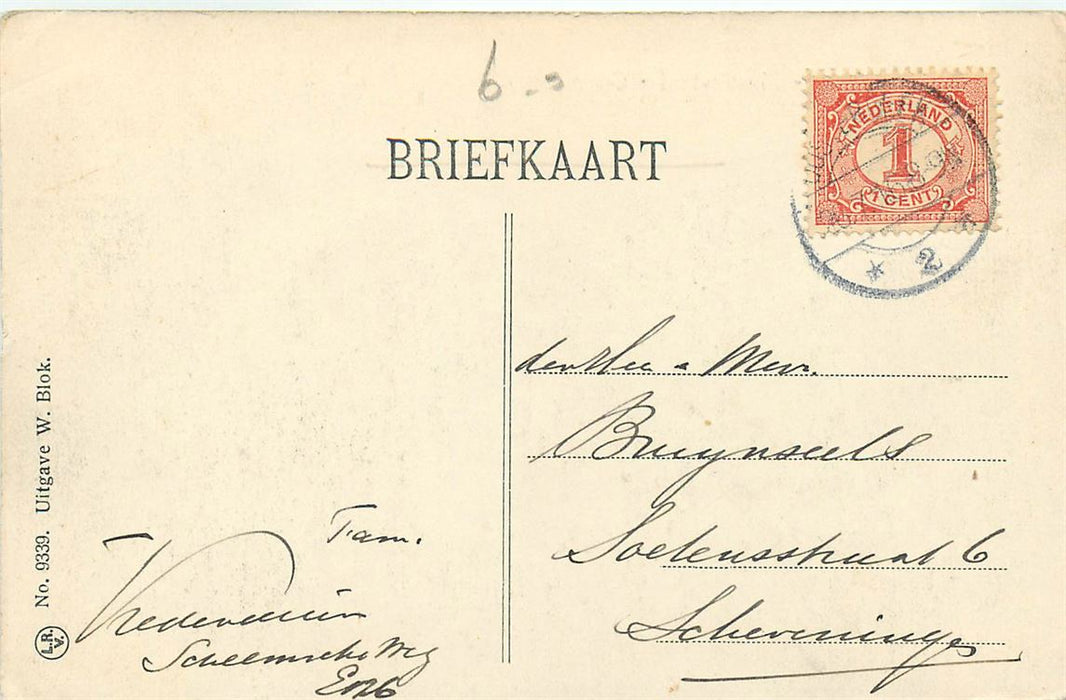 6 -
BRIEFKAART
NEDERLAND
1
1 CENT
2
den Hee & Mevr.
Bruynseels
Soetensstraat 6
Scheveningen
Fam.
Scheemsche Weg
No. 9339. Uitgave W. Blok.
L.R.
V.